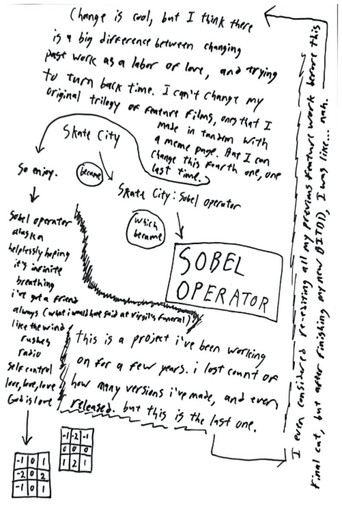 Change is cool, but I think there
is a big difference between changing
past work as a labor of love, and trying
to turn back time. I can't change my
original trilogy of feature films, ones that I
made in tandem with
a meme page. But I can
change this fourth one, one
last time.
Skate City
became
Skate City: Sobel operator
which
became
SOBEL
OPERATOR
So enjoy.
Sobel operator
alaskan
helplessly hoping
it's infinite
breathing
i've got a friend
always (what i would have said at Virgil's funeral)
like the wind
rushes
radio
self control
love, love, love
God is love
-1 0 1
-2 0 2
-1 0 1
-1 -2 -1
0 0 0
1 2 1
this is a project i've been working
on for a few years. i lost count of
how many versions i've made, and even
released. but this is the last one.
I even considered re-editing all my previous feature work before this
final cut, but after finishing my new 81TO(?), I was like... nah.